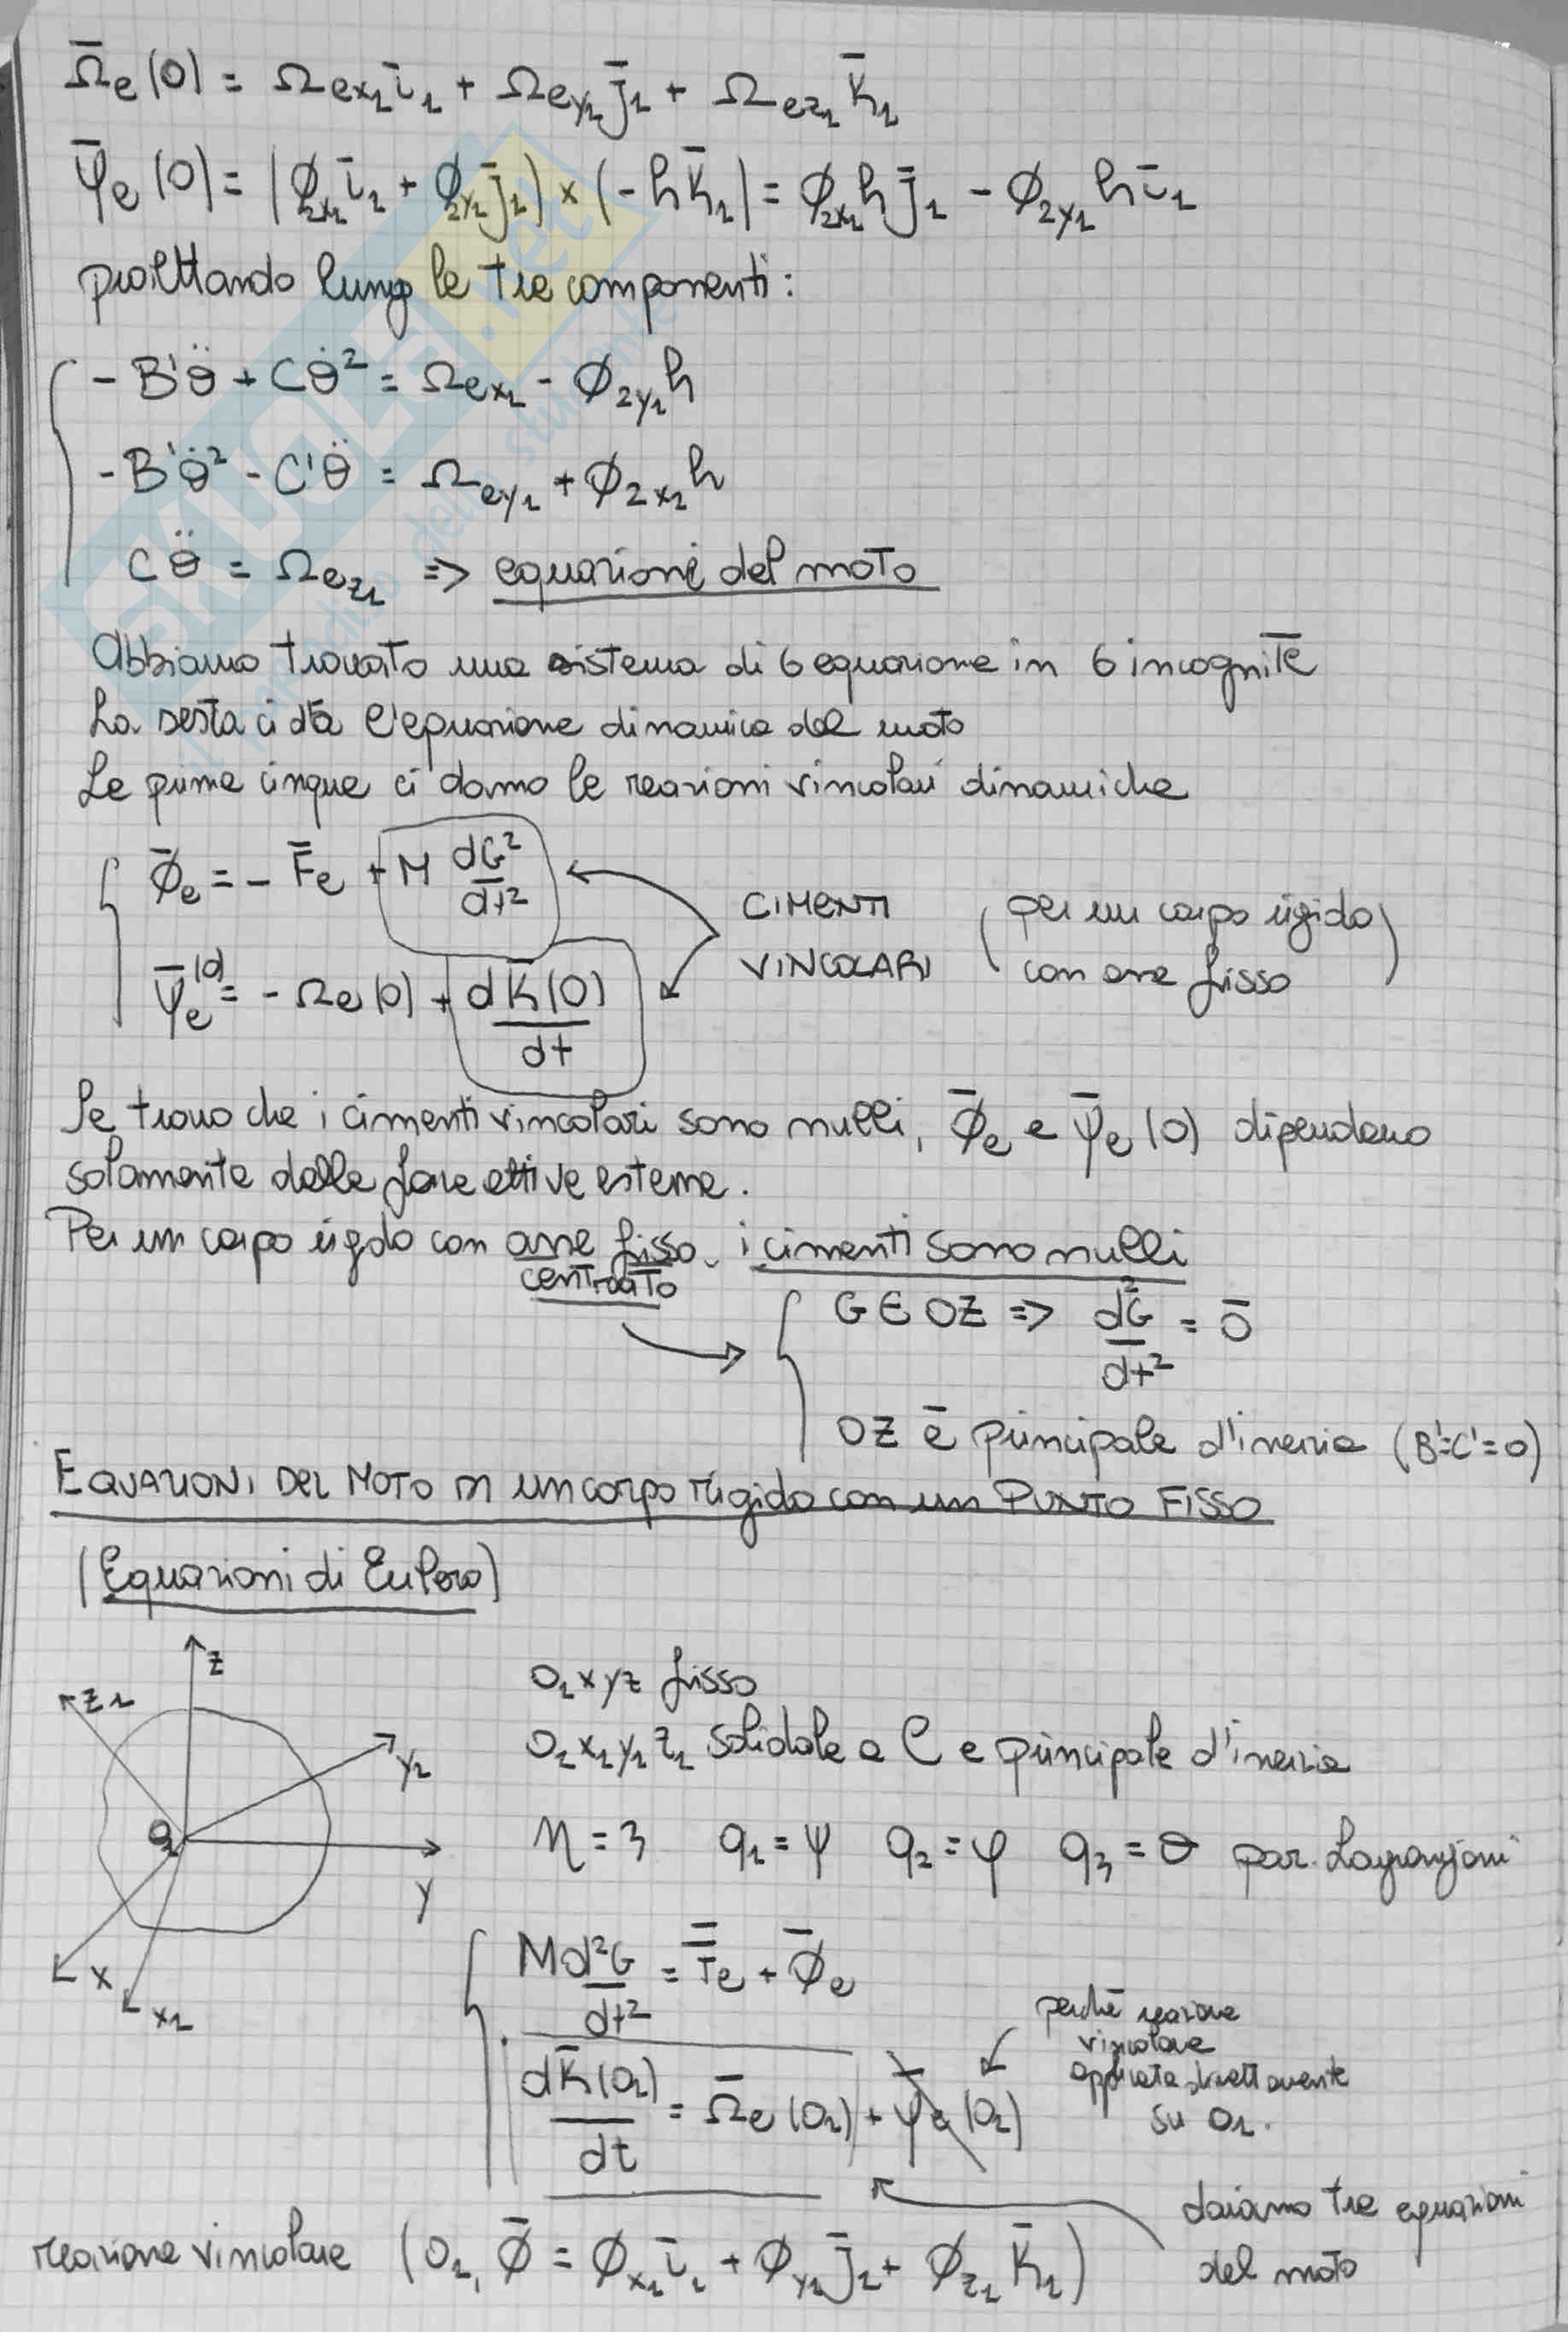 Ω̄e(0) = Ωex₁ī₁ + Ωey₁j̄₁ + Ωez₁k̄₁
ψ̄e(0) = (ϕ₂x₁ī₁ + ϕ₂y₁j̄₁) × (-hk̄₁) = ϕ₂x₁hj̄₁ - ϕ₂y₁hī₁
proiettando lungo le tre componenti:
- B'θ̈ + Cθ̇² = Ωex₁ - ϕ₂y₁h
- B'θ̈² - C'θ̈ = Ωey₁ + ϕ₂x₁h
Cθ̈ = Ωez₁ => equazione del moto
Abbiamo trovato una sistema di 6 equazione in 6 incognite
La sesta ci dà l'equazione dinamica del moto
Le prime cinque ci danno le reazioni vincolari dinamiche
ϕ̄e = - F̄e + M dG²/dt²
CIMENTI VINCOLARI (per un corpo rigido con asse fisso)
ψ̄e(0) = - Ωe(0) + dK̄(0)/dt
Se trovo che i cimenti vincolari sono nulli, ϕ̄e e ψ̄e(0) dipendono
solamente dalle forze attive esterne.
Per un corpo rigido con asse fisso, i cimenti sono nulli
centrato
G ∈ OZ => d²G/dt² = ō
OZ è principale d'inerzia (B'=C'=0)
EQUAZIONI DEL MOTO DI un corpo rigido con un PUNTO FISSO
(Equazioni di Eulero)
z
z₁
y₁
O₁
y
x
x₁
O₁xyz fisso
O₁x₁y₁z₁ solidale a C e principale d'inerzia
n = 3 q₁ = ψ q₂ = φ q₃ = θ par. Lagrangiani
M d²G/dt² = F̄e + ϕ̄e
dK̄(O₁)/dt = Ω̄e(O₁) + ψ̄e(O₁)
perchè reazione
vincolare
applicata direttamente
su O₁.
daranno tre equazioni
del moto
reazione vincolare (O₁, ϕ̄ = ϕx₁ī₁ + ϕy₁j̄₁ + ϕz₁k̄₁)
SKUOLA.net
il paradiso dello studente